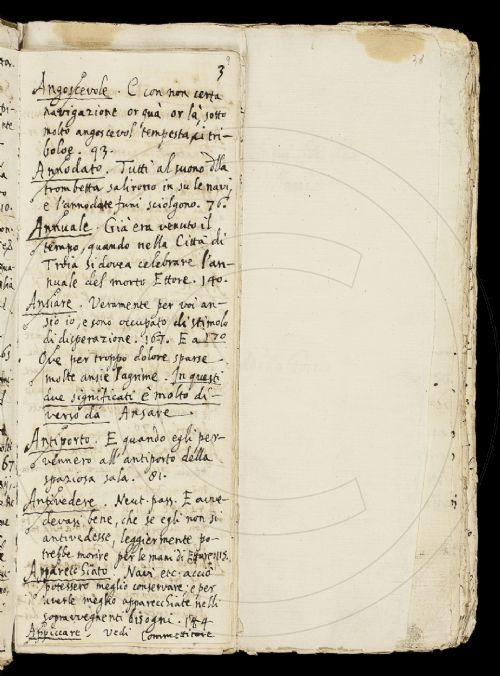 3
38
Angoscevole. E con non certa
navigazione or quà or là, sotto
molto angoscevol' tempesta, ci tri-
bolge. 93.
Annodato. Tutti al suono dlla
trombetta salirono in su le navi,
e l'annodate funi sciolgono. 76.
Annuale. Già era venuto il
tempo, quando nella Città di
Troia si dovea celebrare l'an-
nuale del morto Ettore. 140.
Ansiare. Veramente per voi an-
sio io, e sono occupato di stimolo
di disperazione. 167. E a 170
Ove per troppo dolore sparse
molte ansie lagrime. In questi
due significati è molto di-
verso da Ansare
Antiporto. E quando egli per-
vennero all'antiporto della
spaziosa sala. 81.
Antivedere. Neut. pass. E avve-
devasi bene, che se egli non si
antivedesse, leggiermente po-
trebbe morire per le mani di Ettore. 115.
Apparecchiato Navi etc. acciò
potessero meglio conservare, e per
averle meglio apparecchiate nelli
sopravvegnenti bisogni. 144
Appiccare. Vedi Commettitore